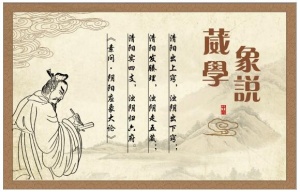 蔵象
學說
清阳出上窍，浊阴出下窍；
清阳发腠理，浊阴走五藏；
清阳实四支，浊阴归六府。
《素问·阴阳应象大论》